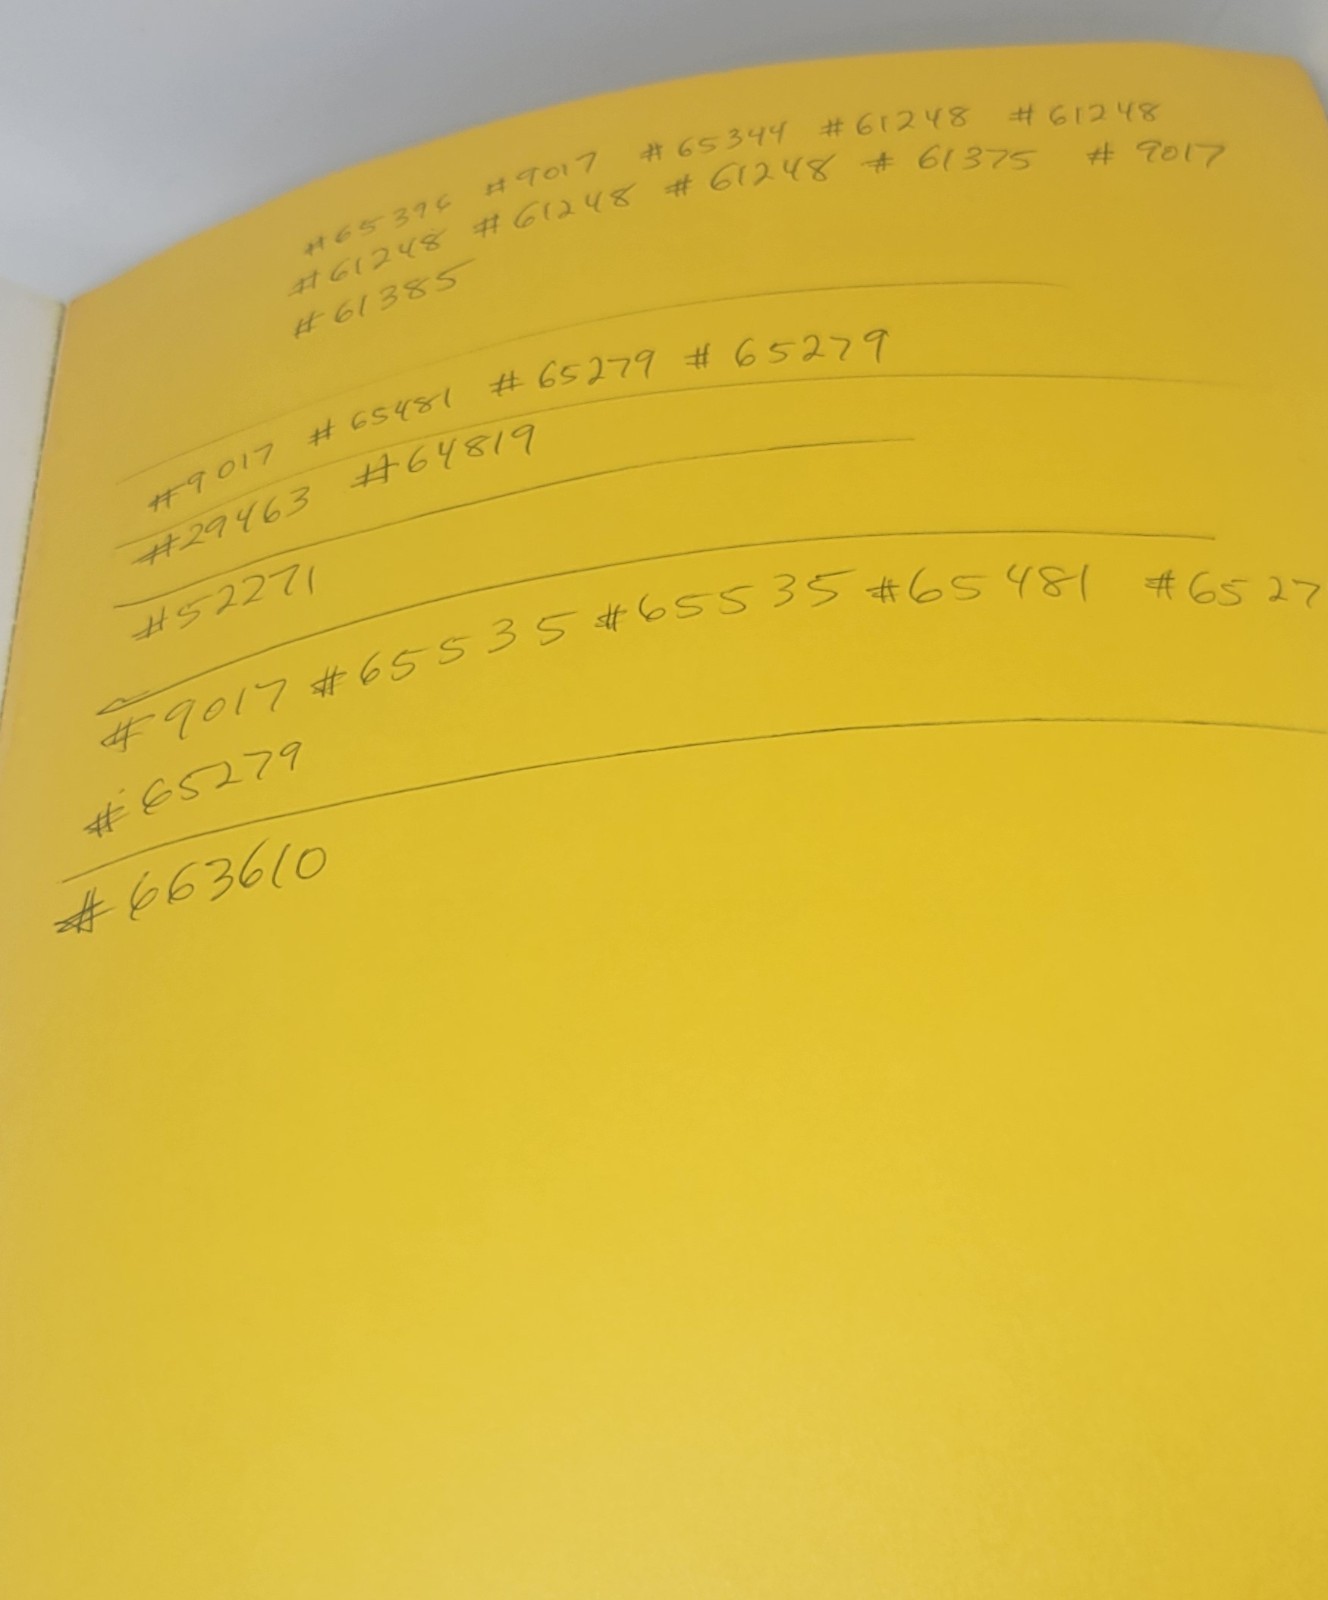 #65396 #9017 #65344 #61248 #61248
#61248 #61248 #61248 #61375 #9017
#61385
#9017 #65481 #65279 #65279
#29463 #64819
#52271
#9017 #65535 #65535 #65481 #6527
#65279
#663610